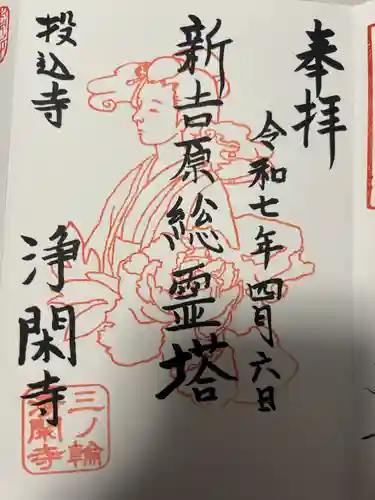 奉拝
令和七年四月六日
新吉原総霊塔
投込寺
浄閑寺
三ノ輪
浄閑寺